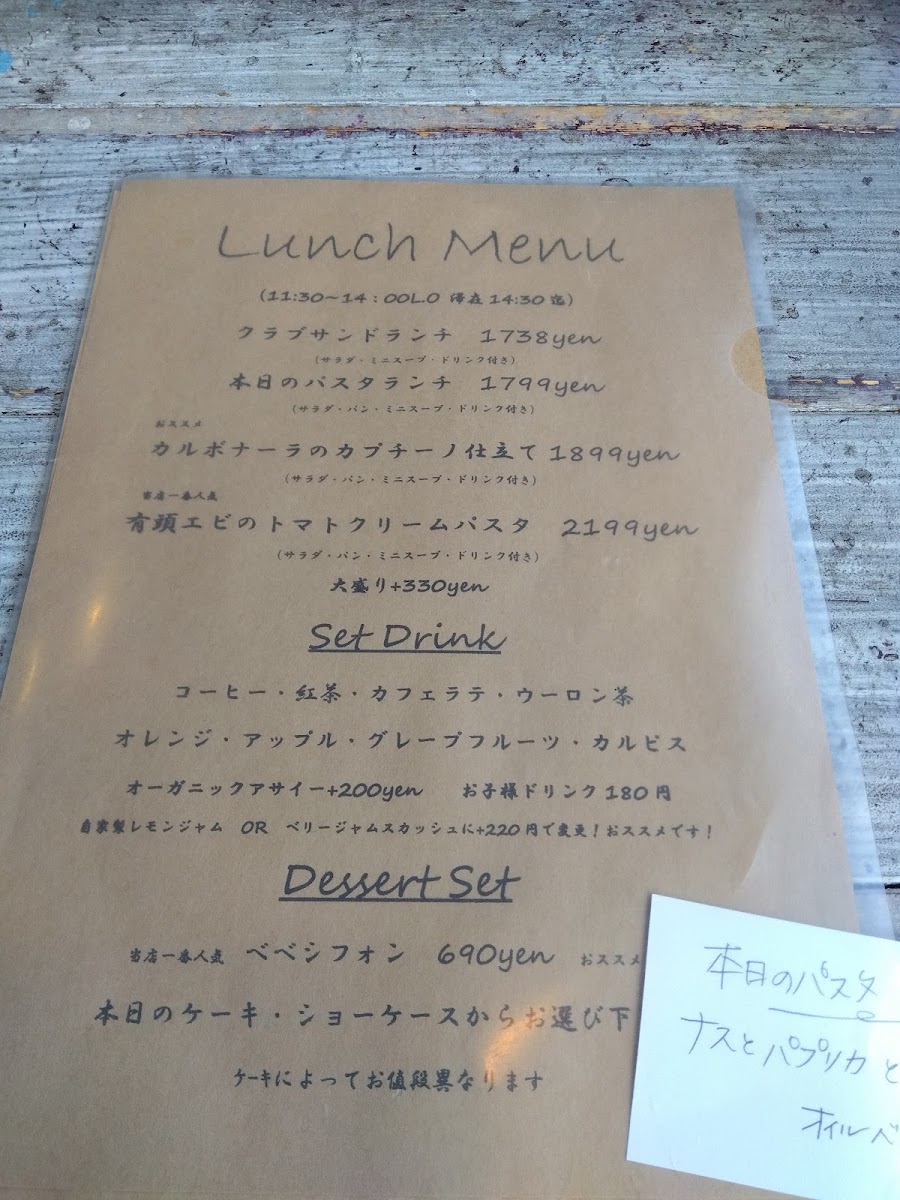 Lunch Menu
(11:30～14：00L.O 滞在14:30迄)
クラブサンドランチ 1738yen
(サラダ・ミニスープ・ドリンク付き)
本日のパスタランチ 1799yen
(サラダ・パン・ミニスープ・ドリンク付き)
おススメ
カルボナーラのカプチーノ仕立て 1899yen
(サラダ・パン・ミニスープ・ドリンク付き)
当店一番人気
有頭エビのトマトクリームパスタ 2199yen
(サラダ・パン・ミニスープ・ドリンク付き)
大盛り+330yen
Set Drink
コーヒー・紅茶・カフェラテ・ウーロン茶
オレンジ・アップル・グレープフルーツ・カルピス
オーガニックアサイー+200yen お子様ドリンク180円
自家製レモンジャム OR ベリージャムスカッシュに+220円で変更！おススメです！
Dessert Set
当店一番人気 ベベシフォン 690yen おススメ
本日のケーキ・ショーケースからお選び下
ケーキによってお値段異なります
本日のパスタ
ナスとパプリカと
オイルベ